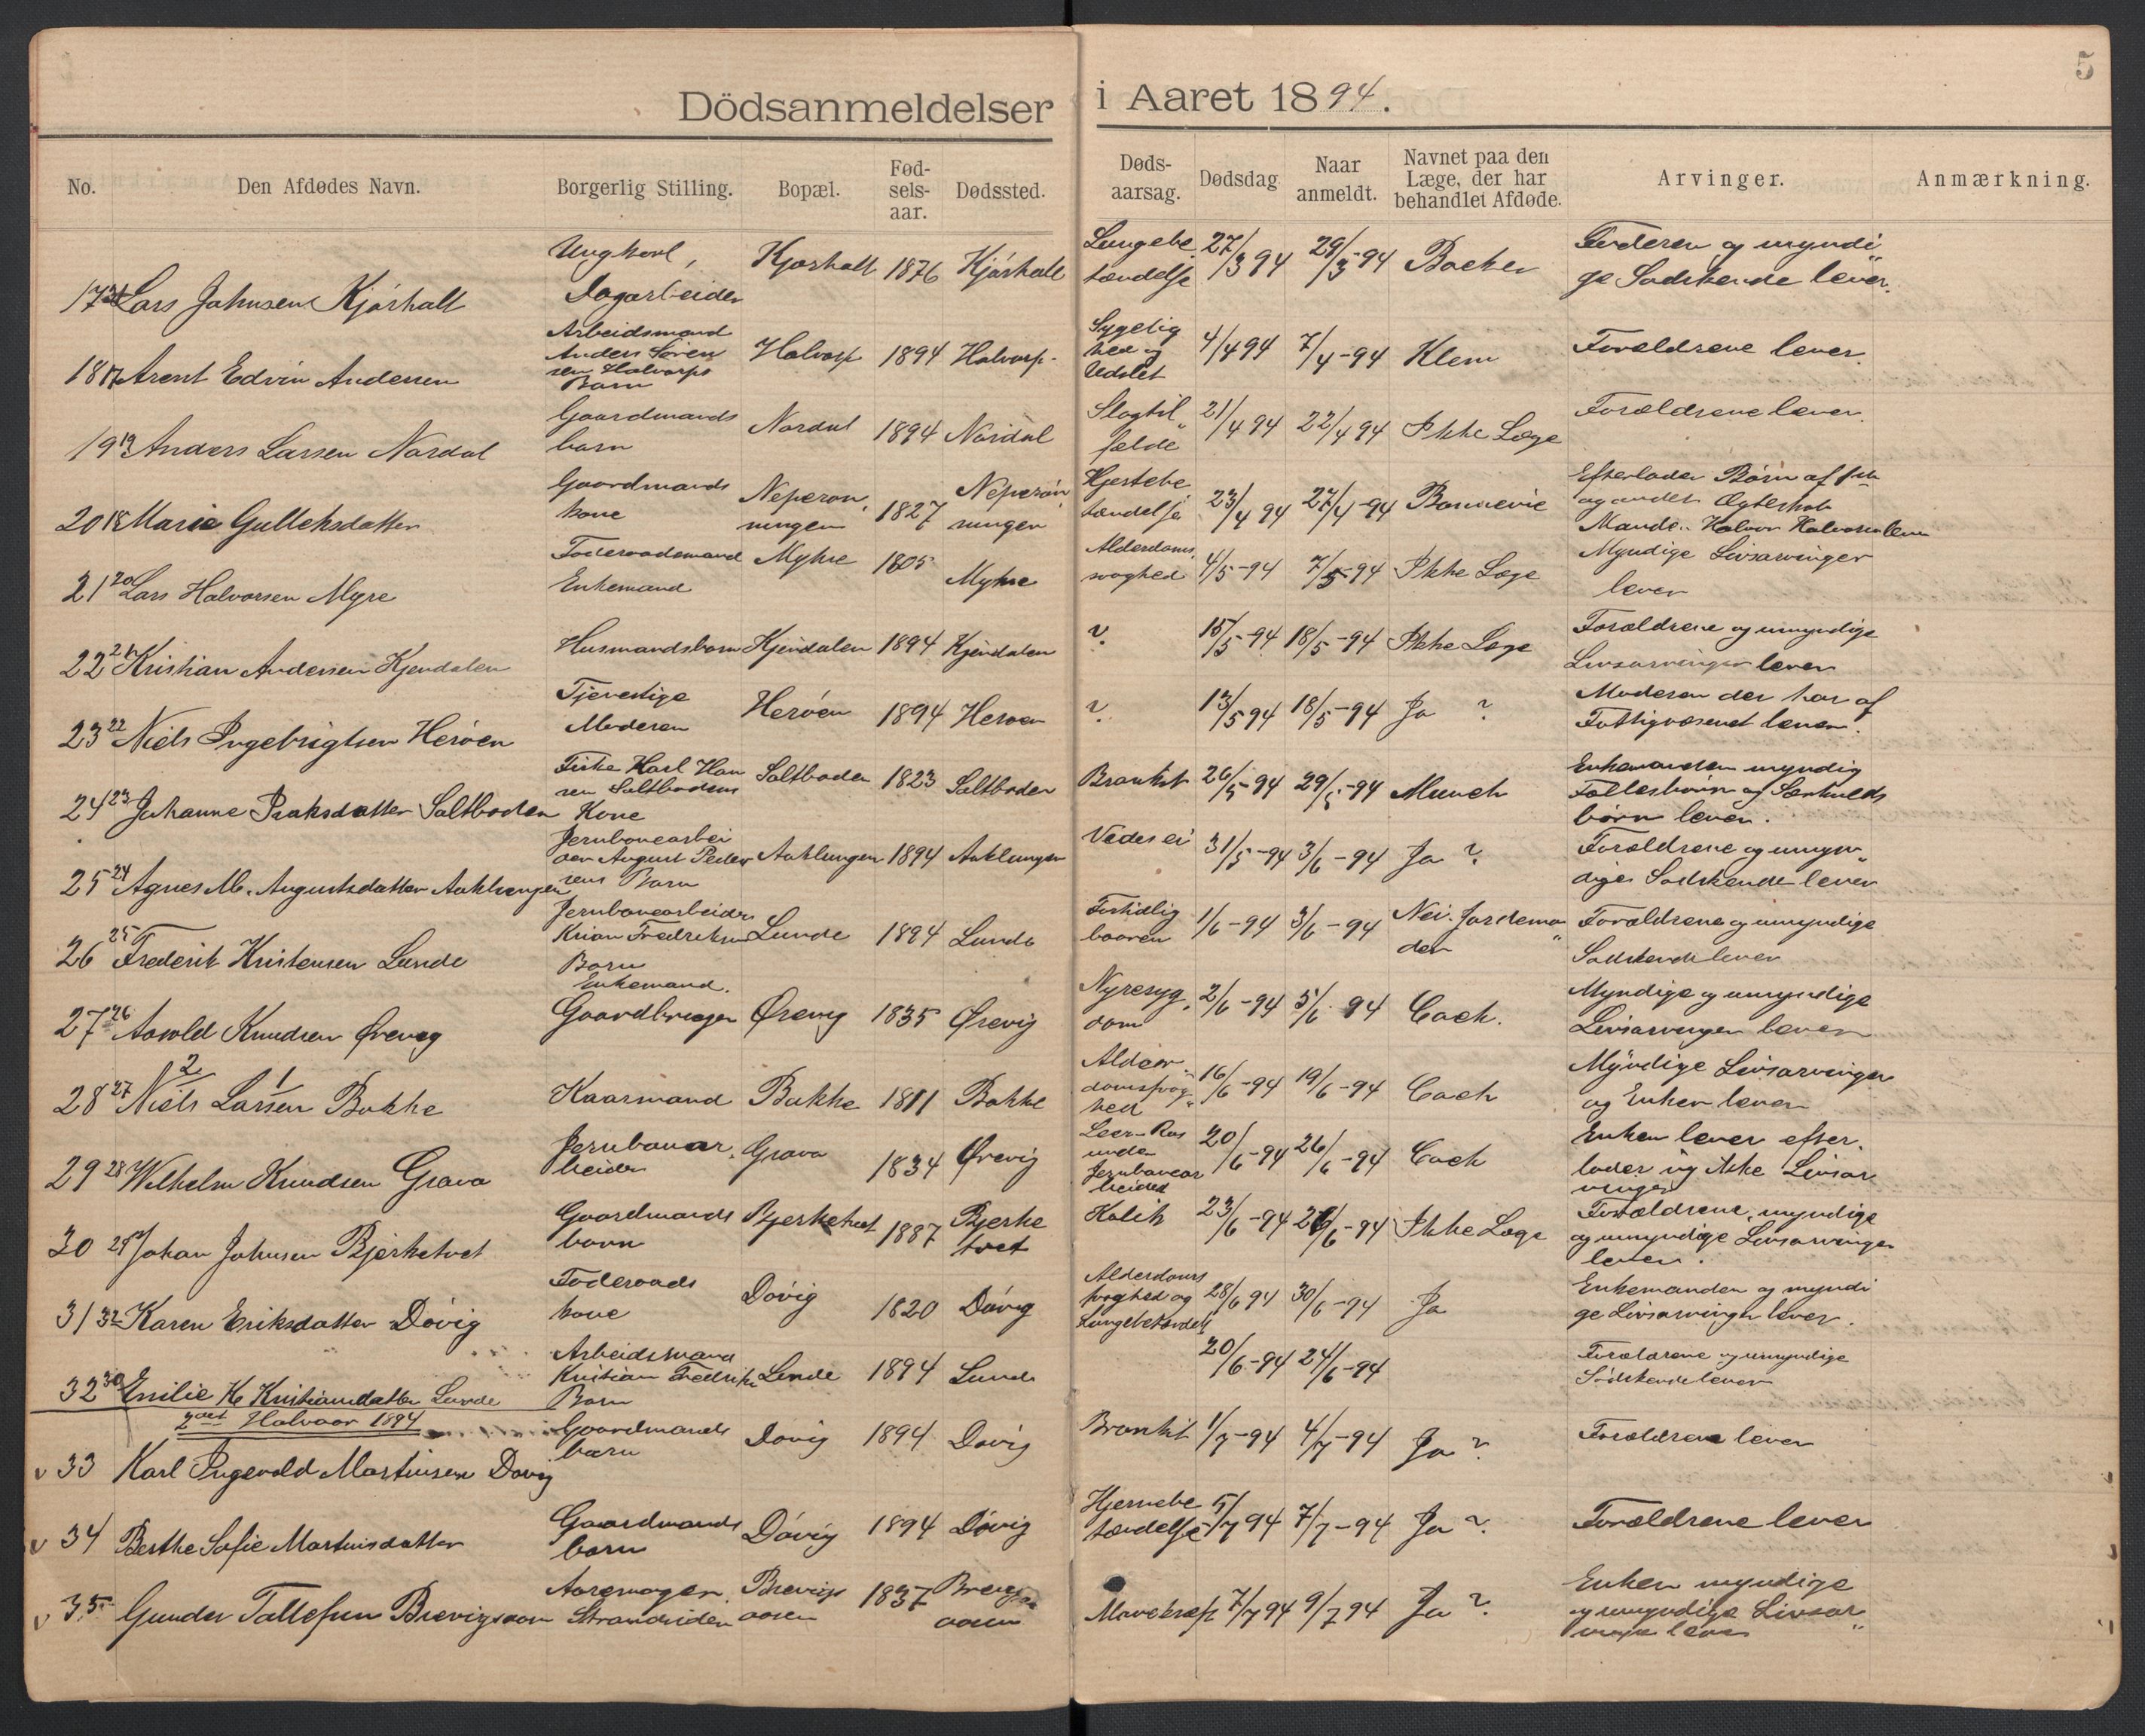 5
Dödsanmeldelser i Aaret 1894.
No. Den Afdødes Navn. Borgerlig Stilling. Bopæl. Fødselsaar. Dødssted. Dødsaarsag. Dødsdag Naar anmeldt. Navnet paa den Læge, der har behandlet Afdøde. Arvinger. Anmærkning.
17 Lars Johnsen Kjørholt Ungkarl, Dagarbeider Kjørholt 1876 Kjørholt Lungebetændelse 27/3 94 29/3-94 Backer Faderen og myndige Sødskende lever.
18 17 Arent Edvin Andersen Arbeidsmand Anders Sörensen Halvarps Barn Halvarp 1894 Halvarp. Sygelighed og Udslet 4/4 94 7/4-94 Klem Forældrene lever.
19 19 Anders Larsen Nordal Gaardmands barn Nordal 1894 Nordal Slagtilfælde 21/4 94 22/4 94 Ikke Læge Forældrene lever.
20 18 Marie Gulleksdatter Gaardmands kone Neperønningen 1827 Neperønningen Hjertebetændelse 23/4 94 27/4-94 Bonnevie Efterlader Börn af 1ste og andet Ægteskab Manden Halvor Halvorsen lever
21 20 Lars Halvorsen Myre Föderaadsmand Enkemand Myhre 1805 Myhre Alderdomssvaghed 4/5-94 7/5-94 Ikke Læge Myndige Livsarvinger lever
22 21 Kristian Andersen Kjendalen Husmandsbarn Kjendalen 1894 Kjendalen ? 15/5-94 18/5-94 Ikke Læge Forældrene og umyndige Livsarvinger lever
23 22 Niels Ingebrigtsen Herøen Tjenestige Moderen Herøen 1894 Herøen ? 13/5 94 18/5-94 Ja ? Moderen der har af Fattigvæsenet lever.
24 23 Johanne Isaksdatter Saltboden Fisker Karl Hansen Saltbodens Kone Saltboden 1823 Saltboden Bronkit 26/5-94 29/5-94 Munch Enkemanden myndig Fællesbörn og Særkulds börn lever.
25 24 Agnes M. Augustsdatter Aaklungen Jernbanearbeider August Pedersens Barn Aaklungen 1894 Aaklungen Vedes ei 31/5-94 3/6-94 Ja ? Forældrene og umyndige Sødskende lever
26 25 Frederik Kristensen Lunde Jernbanearbeider Fredriksens Barn Lunde 1894 Lunde Fortidlig baaren 1/6-94 3/6-94 Nei. Jordemoder Forældrene og umyndige Sødskende lever
27 26 Aavold Knudsen Ørevig Enkemand. Gaardbruger Ørevig 1835 Ørevig Nyresygdom 2/6-94 5/6 94 Coch. Myndige og umyndige Livsarvinger lever
28 27 2 1 Niels Larsen Bakke Kaarmand Bakke 1811 Bakke Alderdomssvaghed 16/6-94 19/6-94 Coch Myndige Livsarvinger og Enken lever
29 28 Wilhelm Knudsen Grava Jernbanearbeider Grava 1834 Ørevig Leer-Ras under Jernbanearbeidet 20/6-94 26/6-94 Coch Enken lever efterlader sig ikke Livsarvinger
30 29 Johan Johnsen Bjerketvet Gaardmands barn Bjerketvet 1887 Bjerketvet Kolik 23/6-94 26/6-94 Ikke Læge Forældrene, myndige og umyndige Livsarvinger lever.
31 32 Karen Eriksdatter Døvig Föderaads kone Døvig 1820 Døvig Alderdomssvaghed og Lungebetændelse 28/6 94 30/6-94 Ja Enkemanden og myndige Livsarvinger lever.
32 30 Emilie K. Kristiansdatter Lunde Arbeidsmand Kristian Fredriks Barn Lunde 1894 Lunde 20/6-94 24/6-94 Forældrene og umyndige Sødskende lever
2det Halvaar 1894
v 33 Karl Ingevald Martinsen Døvig Gaardmands barn Døvig 1894 Døvig Bronkit 1/7-94 4/7-94 Ja ? Forældrene lever
v 34 Berthe Sofie Martinsdatter Gaardmands barn Døvig 1894 Døvig Hjernebetændelse 5/7 94 7/7-94 Ja ? Forældrene lever
v 35 Gunder Tallefsen Brevigsaasen Aaremager Strandsidder Brevigsaasen 1837 Brevigsaasen Mavekræft 7/7 94 9/7 94 Ja ? Enken myndige og umyndige Livsarvinger lever